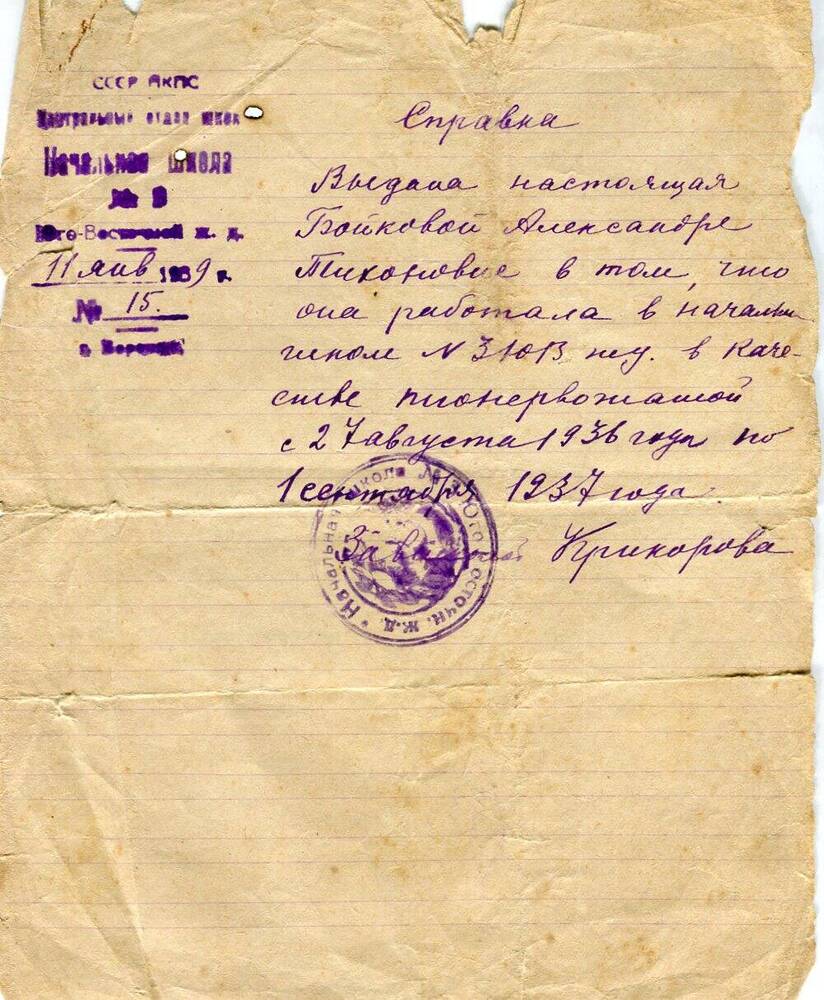 СССР НКПС
Центральный отдел школ
Начальная школа
№ 3
Юго-Восточной ж. д.
11 янв 1939 г.
№ 15.
г. Воронеж
Справка
Выдана настоящая
Бойковой Александре
Тихоновне в том, что
она работала в начальн
школе N 3 ЮВ жд. в каче-
стве пионервожатой
с 27 августа 1936 года по
1 сентября 1937 года
Зав. школой Крикорова
Начальная школа № 3 Юго-Восточн. ж.д.